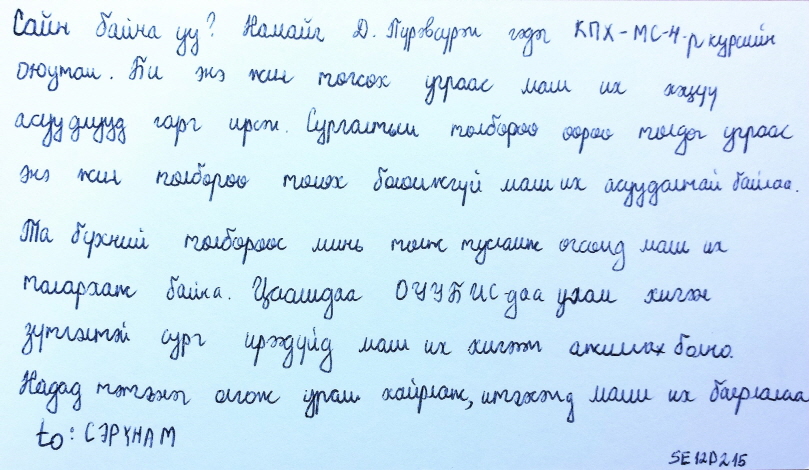 Сайн байна уу? Намайг Д. Пүрэвсүрэн гэдэг КПХ-МС-4-р курсийн
оюутан. Би энэ жил төгсөх учраас маш их хэцүү
асуудлууд гарч ирсэн. Сургалтын төлбөрөө өөрөө төлдөг учраас
энэ жил төлбөрөө төлөх боломжгүй маш их асуудалтай байлаа.
Та бүхний төлбөрөөс минь төлж тусалж өгсөнд маш их
талархаж байна. Цаашдаа ОУУБИС-даа улам хичээж
зүтгэлтэй сурч ирээдүйд маш их хичээж ажиллах болно.
Надад тэтгэлэг олгож урам хайрлаж, итгэхэд маш их баярлалаа
to: СЭРҮҮНАМ
SE12D215